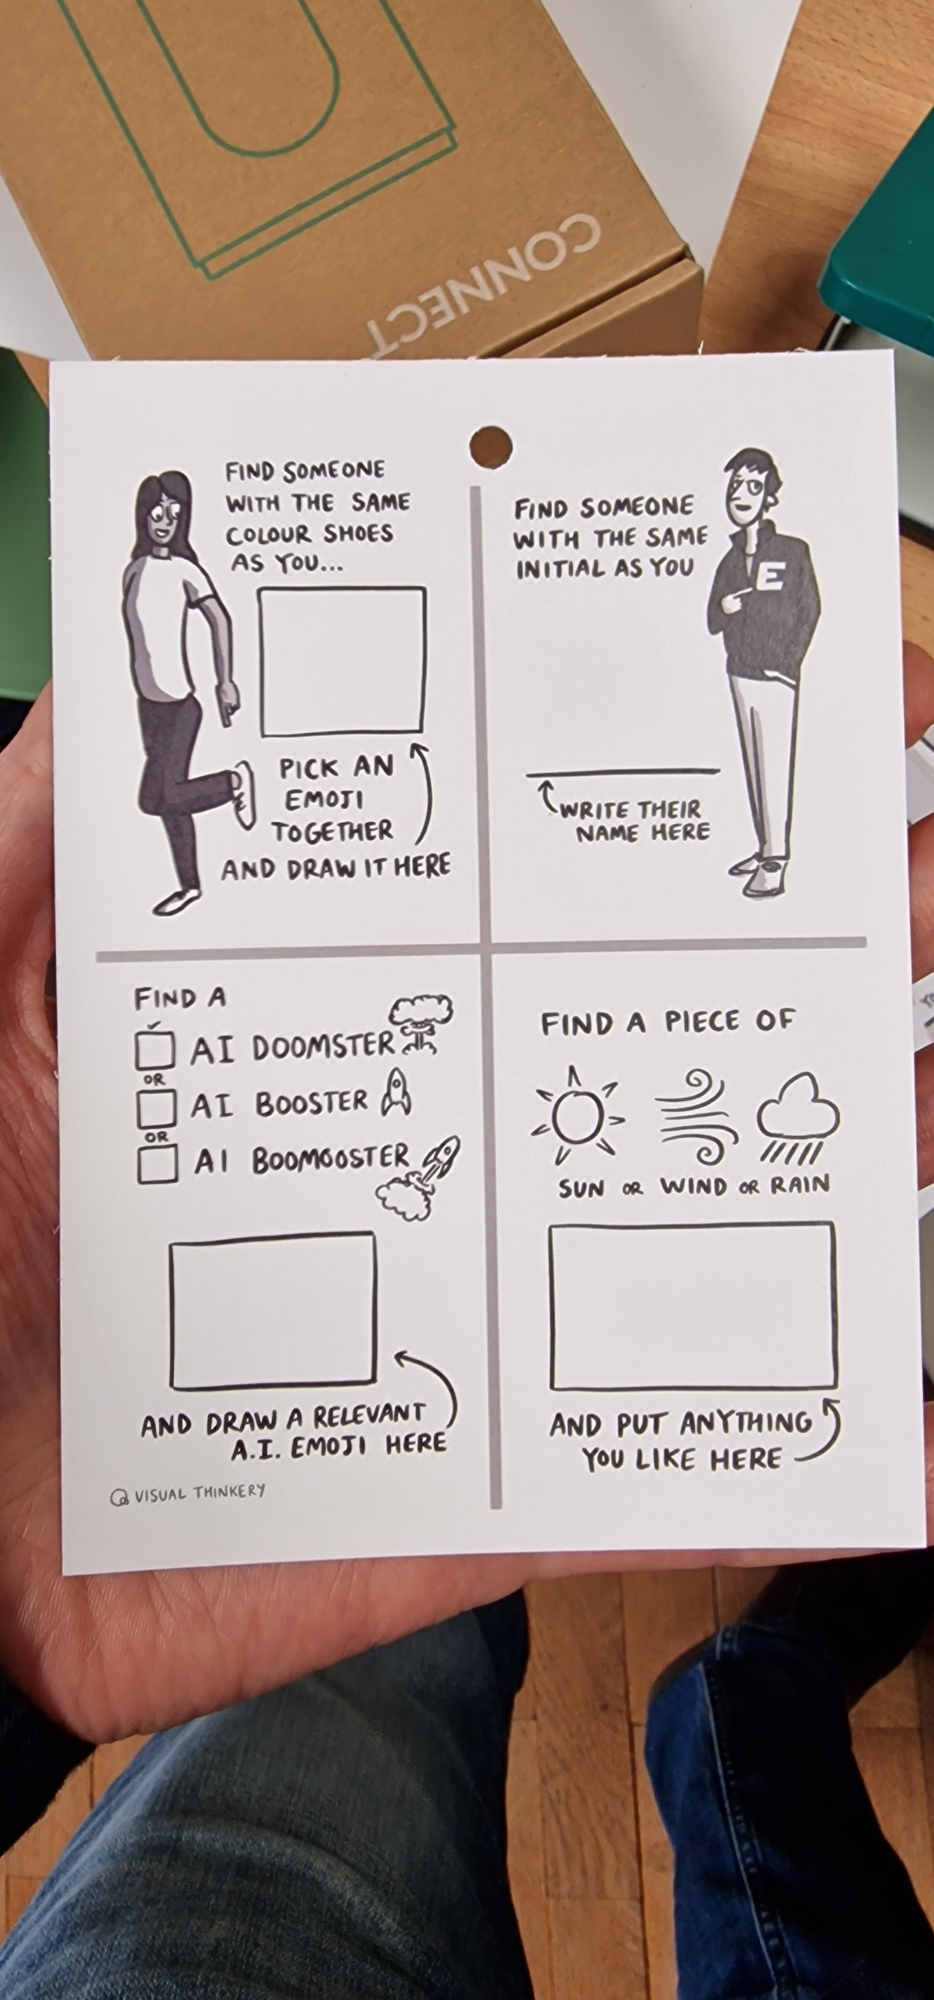 CONNECT
FIND SOMEONE
WITH THE SAME
COLOUR SHOES
AS YOU...
PICK AN
EMOJI
TOGETHER
AND DRAW IT HERE
FIND SOMEONE
WITH THE SAME
INITIAL AS YOU
E
WRITE THEIR
NAME HERE
FIND A
AI DOOMSTER
OR
AI BOOSTER
OR
AI BOOMOOSTER
AND DRAW A RELEVANT
A.I. EMOJI HERE
VISUAL THINKERY
FIND A PIECE OF
SUN OR WIND OR RAIN
AND PUT ANYTHING
YOU LIKE HERE